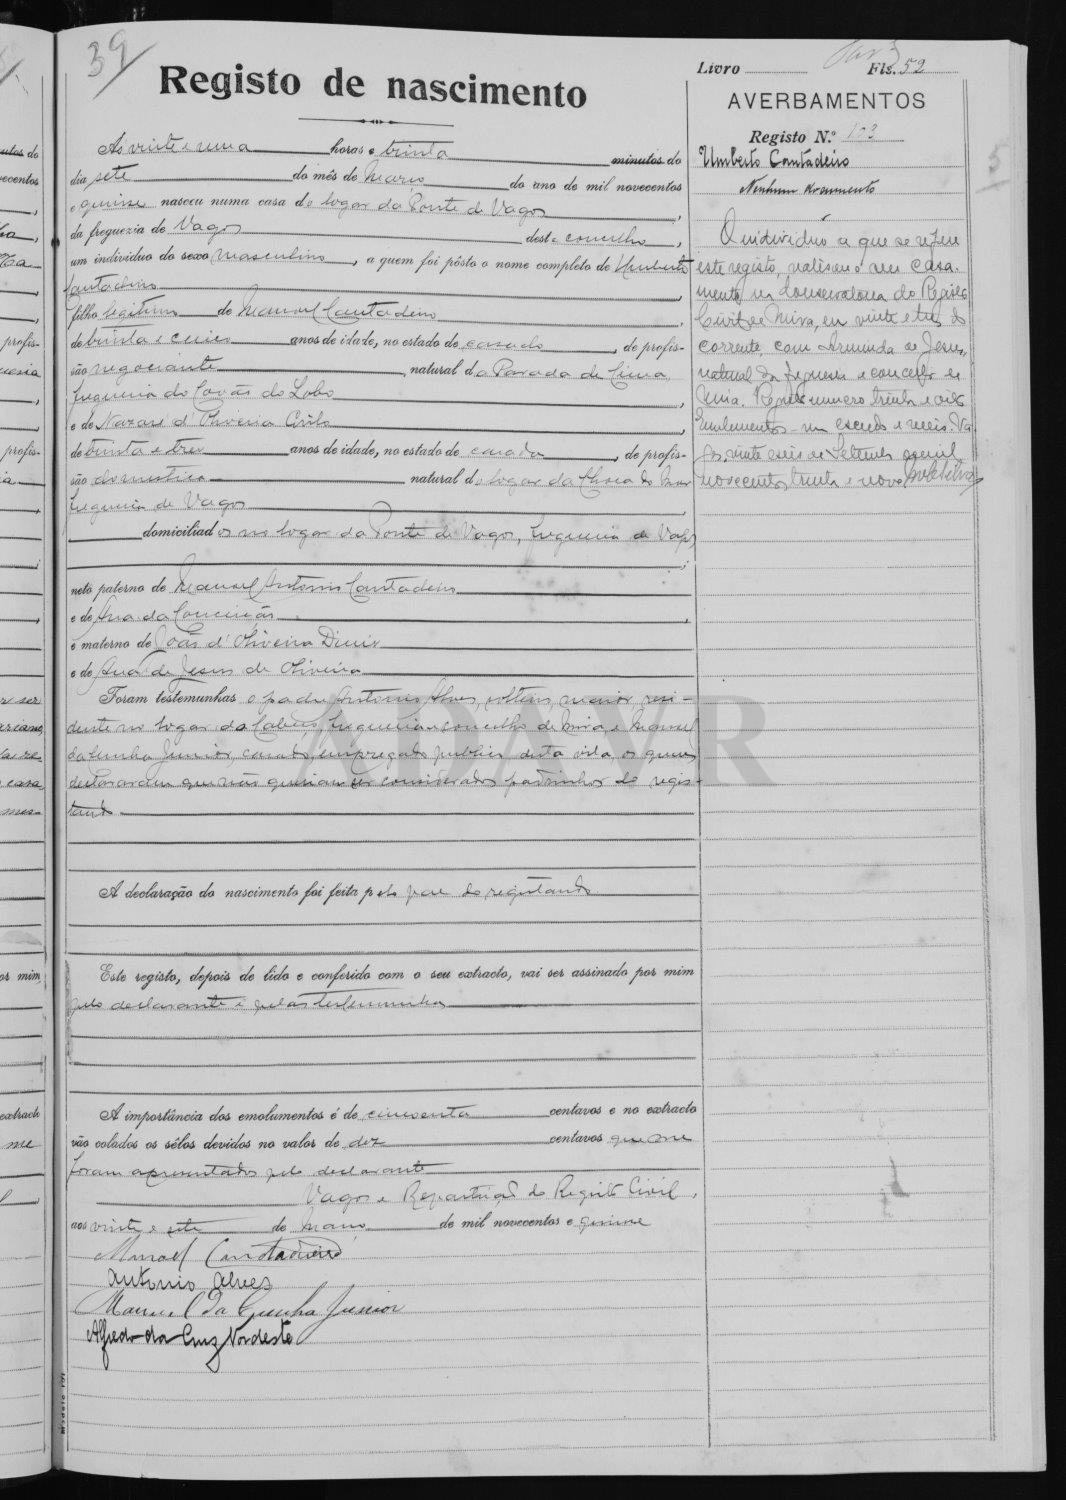 39
Registo de nascimento
Às vinte e uma horas e trinta minutos do
dia sete do mês de Março do ano de mil novecentos
e quinse nasceu numa casa do logar da Ponte de Vagos,
da freguezia de Vagos deste concelho,
um individuo do sexo masculino, a quem foi pôsto o nome completo de Umberto
Cantadeiro
filho legitimo de Manuel Cantadeiro,
de trinta e anos de idade, no estado de casado, de profis-
são negociante, natural da Parada de Cima,
freguezia do Covão do Lobo,
e de Nazaré d'Oliveira
de trinta e tres anos de idade, no estado de casada, de profis-
são domestica natural do logar da do
freguezia de Vagos
domiciliados no logar da Ponte de Vagos, freguezia de Vagos
;
neto paterno de Manuel Antonio Cantadeiro
e de Ana da Conceição,
e materno de João d'Oliveira Diniz
e de Ana de Jesus de Oliveira
Foram testemunhas o padre Antonio Alves, solteiro, maior, resi-
dente no logar da freguezia e concelho de Mira e Manuel
da Cunha Junior, casado, empregado publico desta vila, os quaes
declararam que não queriam ser considerados padrinhos do regis-
tando
A declaração do nascimento foi feita pelo pae do registando
Este registo, depois de lido e conferido com o seu extracto, vai ser assinado por mim
pelo declarante e pelas testemunhas
A importância dos emolumentos é de cincoenta centavos e no extracto
vão colados os sêlos devidos no valor de dez centavos que me
foram apresentados pelo declarante
Vagos e Repartição do Registo Civil,
aos vinte e sete de Março de mil novecentos e quinse
Manoel Cantadeiro
Antonio Alves
Manuel da Cunha Junior
Alfredo da Cruz Nordeste
Modelo
Livro Fls. 52
AVERBAMENTOS
Registo N.º 103
Umberto Cantadeiro
Nenhum documento
O individuo a que se refere
este registo, realisou o seu casa-
mento na Conservatoria do Registo
Civil de Mira, em vinte e tres do
corrente, com Arminda de Jesus,
natural da freguesia e concelho de
Mira. Registo numero trinta e oito
Emolumentos um escudo e meio. Va-
gos, vinte e seis de Setembro de mil
novecentos trinta e nove
ADAVR